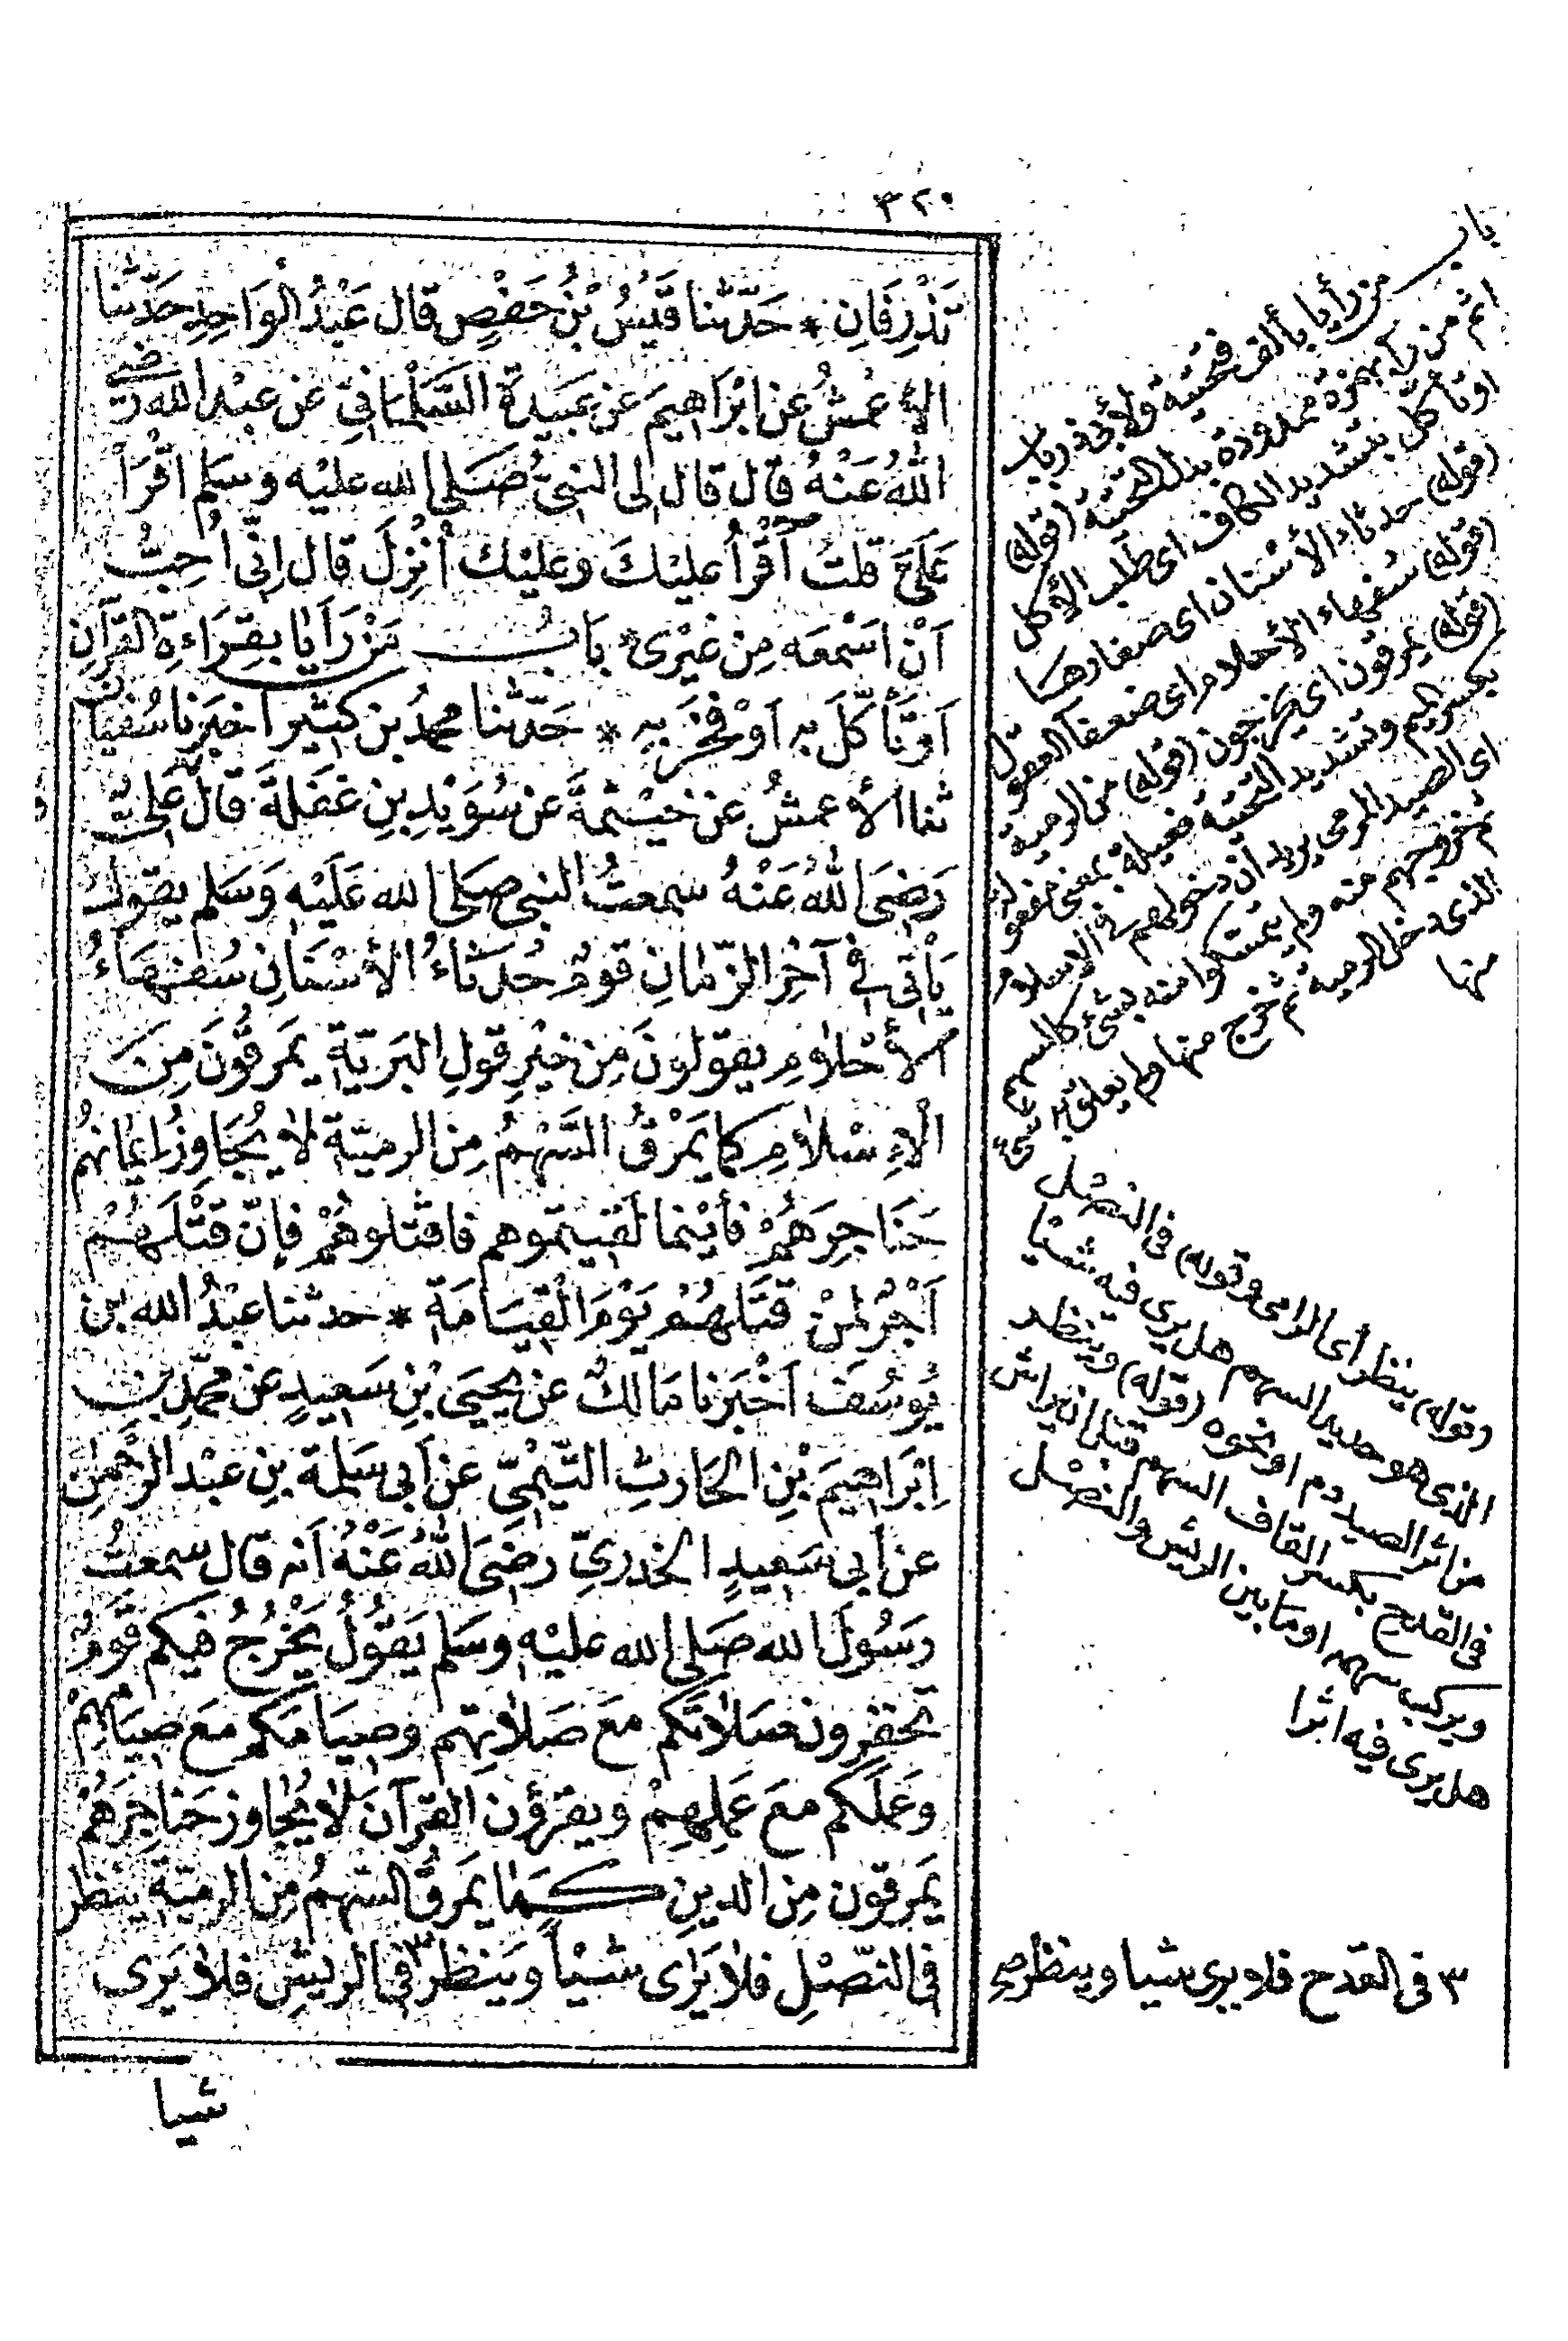 ٣٢٠
تَذْرِفَانِ * حَدَّثنا قَيْسُ بْنُ حَفْصٍ قال عَبْدُ الْوَاحِدِ حَدَّثنا
الأَعْمَشُ عن اِبْرَاهِيمَ عن عَبِيدَةَ السَّلْمَانِىِّ عن عبْدِ الله رضى
اللهُ عَنْهُ قال قال لى النبىُّ صَلى الله عليْه وسَلم اقْرَأْ
عَلَىَّ قلتُ آقْرَأُ عليْكَ وَعليْك اُنْزِلَ قال اِنِّى اُحِبُّ
اَنْ اَسْمَعَه مِن غيْرِى * بَابُ مَنْ رَايَا بقِرَاءةِ القرآنِ
اَوْتَأكَّلَ بهِ اَوْ فَخَرَ بِهِ * حَدّثنا محمدُ بن كثير اخبَرنا سُفيَانُ
ثنا الأَعمشُ عن خيْثمَةَ عن سُوَيْدِ بنِ غفَلةَ قال علىٌّ
رَضِىَ اللهُ عَنْهُ سَمعتُ النبى صَلى الله عَلَيْهِ وَسَلم يقول
يَأْتى فى آخِرِ الزّمانِ قومٌ حُدَثاءُ الأَسْنَانِ سُفهَاءُ
الأَحْلاَمِ يقولونَ مِن خيْرِ قولِ البَريّةِ يَمرُقونَ مِنَ
الْاِسْلاَمِ كما يَمْرُقُ السَّهْمُ مِن الرميّةِ لاَ يُجَاوِزُ اِيمَانُهُمْ
حَنَاجِرَهُمْ فأيْنما لَقيتموهم فاقتُلوهُمْ فإنّ قتْلَهُمْ
اَجْرٌ لمنْ قتَلَهُمْ يَوْمَ الْقِيَامَةِ * حدثنا عبْدُ الله بن
يُوسُفَ اَخْبَرنا مَالكٌ عن يحيَى بْنِ سَعِيدٍ عن محمّدِ بن
اِبْرَاهِيمَ بْنِ الحَارثِ التّيْمىِّ عن اَبى سَلمة بنِ عبْد الرّحْمٰنِ
عن اَبى سَعِيدٍ الخدرىِّ رضَىَ اللهُ عَنْهُ اَنه قال سمعتُ
رَسُولَ الله صَلى الله عليْهِ وسَلم يَقُولُ يَخْرُجُ فيكم قَوْمٌ
تحقِرونَ صَلاَتَكم معَ صَلاَتِهم وصِيَامَكم معَ صِيَامِهِمْ
وعَمَلَكم معَ عَمَلِهِمْ ويقرؤن القرآنَ لاَ يُجاوز حَناجِرَهُمْ
يَمرقون مِن الدينِ كَمَا يَمرقُ السّهمُ مِن الرميّةِ ينظر
فى النّصْلِ فلا يَرَى شيْأً ويَنظر ٣ فى الريشِ فلاَ يَرى
شيا
باب
من رأيا بألف فتحتية ولأبى ذر باب
اثم من راءا بهمزة ممدودة بدل التحتية (قوله)
اوتأكل بتشديد الكاف اى طلب الأكل
(قوله) حدثاء الأسنان اى صغارها
(قوله) سفهاء الأحلام اى ضعفاء العقول
(قوله) يمرقون اى يخرجون (قوله) من الرمية
بكسر الميم وتشديد التحتية فعيلة بمعنى مفعولة
اى الصيد المرمى يريد ان دخولهم فى الإسلام
ثم خروجهم منه ولم يتمسكوا منه بشئ كالسهم
الذى دخل الرمية ثم خرج منها ولم يعلق به شئ
منها
(قوله) ينظر أى الرامى (وقوله) فى النصل
الذى هو حديد السهم هل يرى فيه شيئا
من اثر الصيد دم او نحوه (قوله) وينظر
فى القدح بكسر القاف السهم قبل ان يراش
ويركب سهمه او ما بين الريش والنصل
هل يرى فيه اثرا
٣ فى القدح فلا يرى شيا وينظر صح